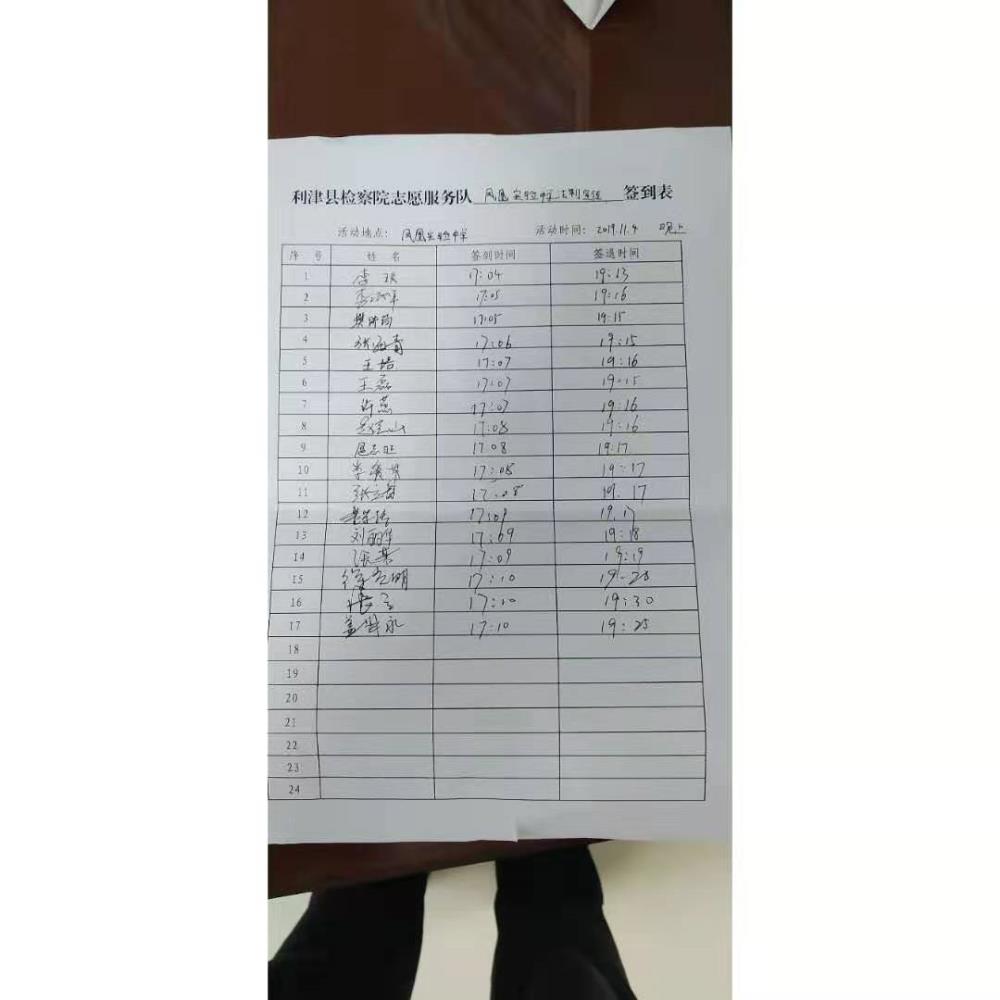 利津县检察院志愿服务队 凤凰实验中学法制宣传 签到表
活动地点: 凤凰实验中学 活动时间: 2019.11.4 晚上
序 号 姓 名 签到时间 签退时间
1 李 17:04 19:13
2 李 17:05 19:16
3 17:05 19:15
4 张海青 17:06 19:15
5 王培 17:07 19:16
6 王磊 17:07 19:15
7 许燕 17:07 19:16
8 17:08 19:16
9 屈志旺 17:08 19:17
10 李 17:08 19:17
11 张立 17:08 19:17
12 17:09 19:17
13 刘丽华 17:09 19:18
14 张 17:09 19:19
15 徐 明 17:10 19:28
16 张 17:10 19:30
17 盖 永 17:10 19:25
18
19
20
21
22
23
24